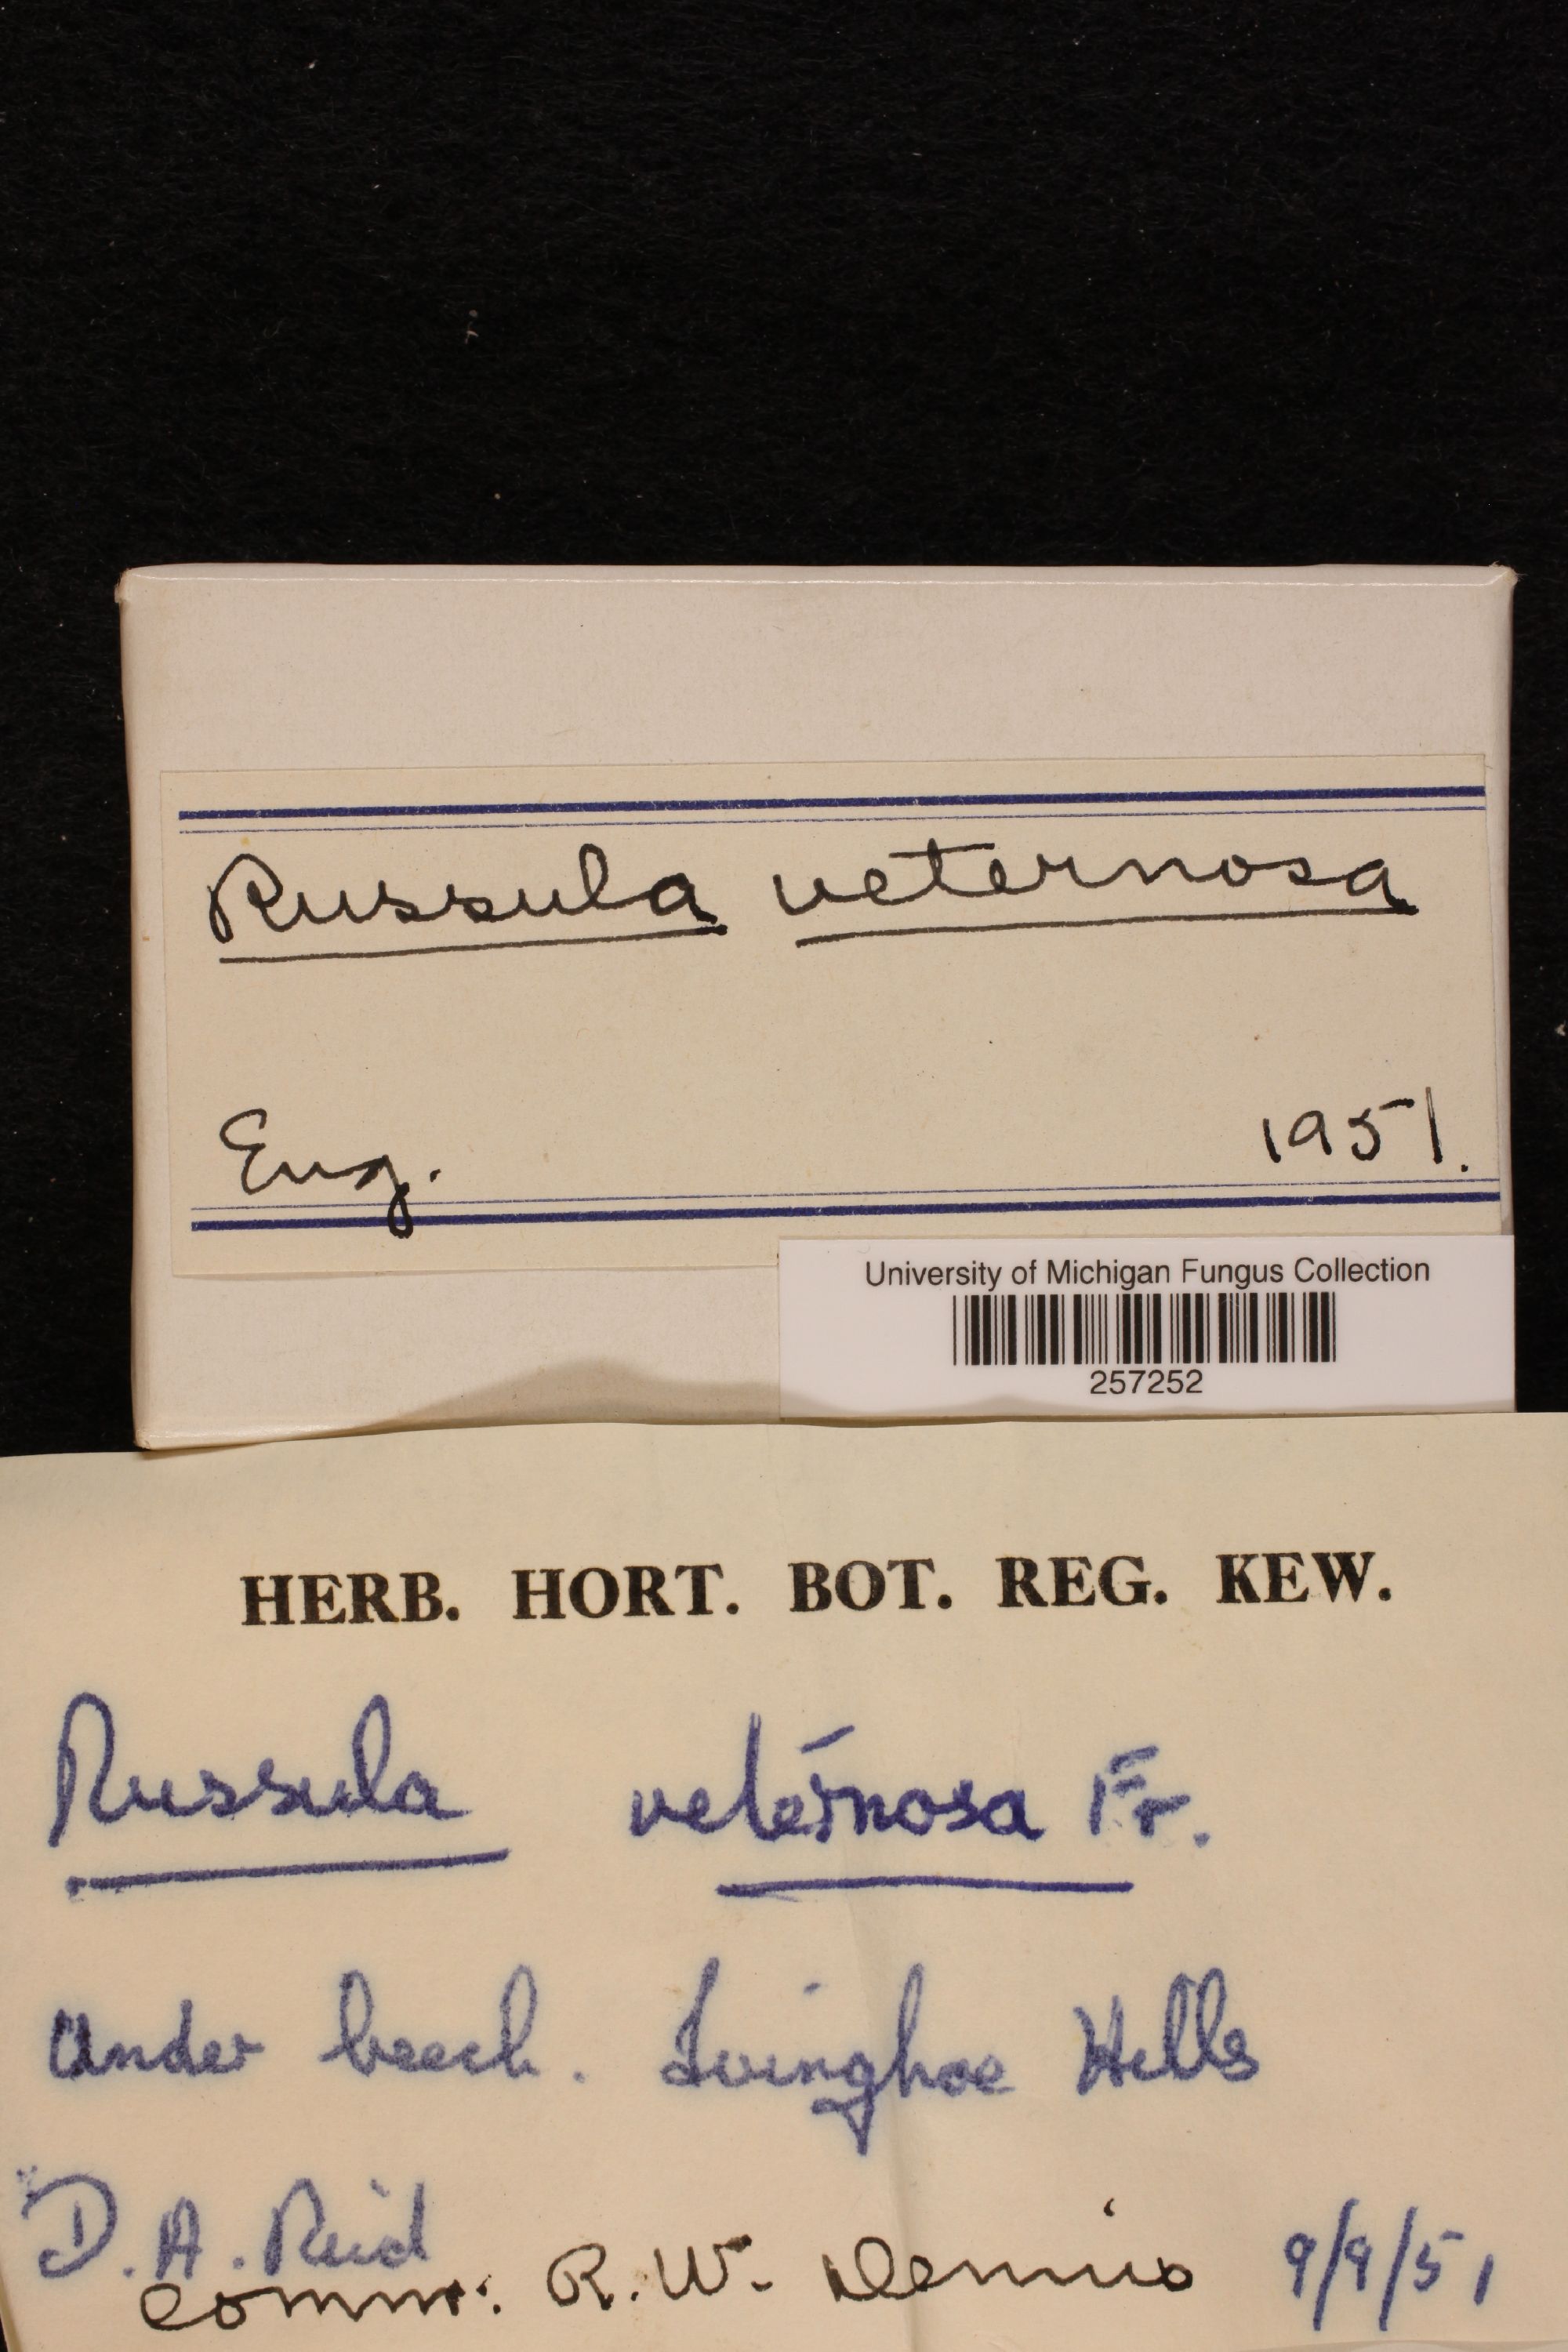 Russula veternosa
Eng. 1951.
University of Michigan Fungus Collection
257252
HERB. HORT. BOT. REG. KEW.
Russula veternosa Fr.
Under beech. Ivinghoe Hills
D. A. Reid
comm: R. W. Dennis 9/9/51